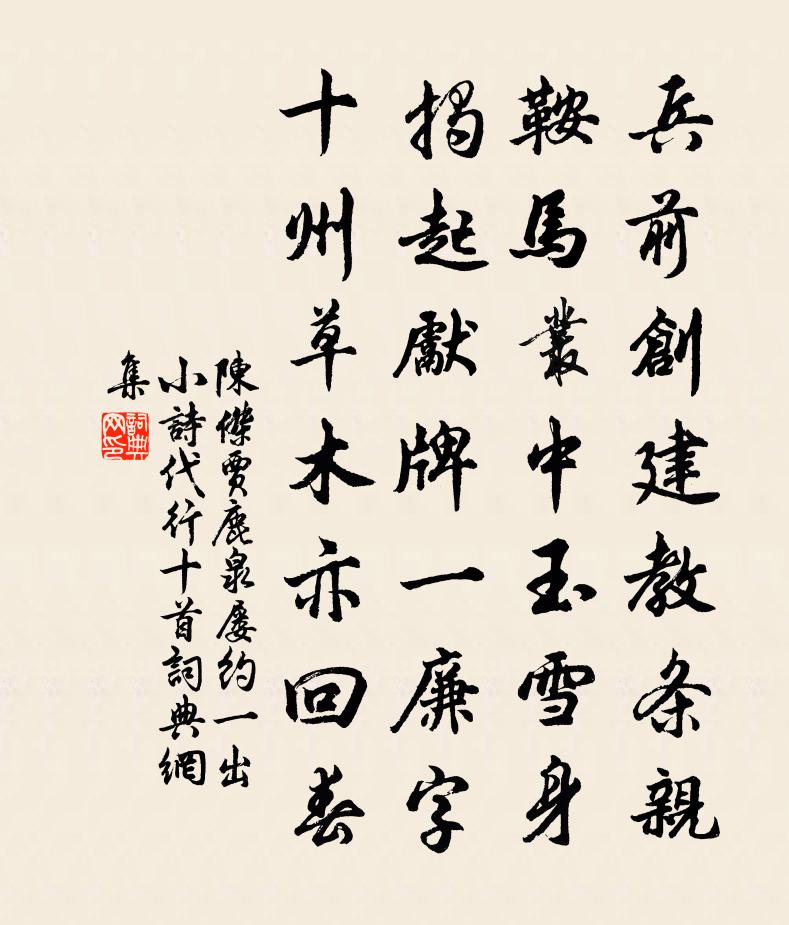 兵前創建教条親
鞍馬叢中玉雪身
揭起獻牌一廉字
十州草木亦回春
陳傑賈鹿泉屡約一出
小詩代行十首詞典網
集
詞典
网印